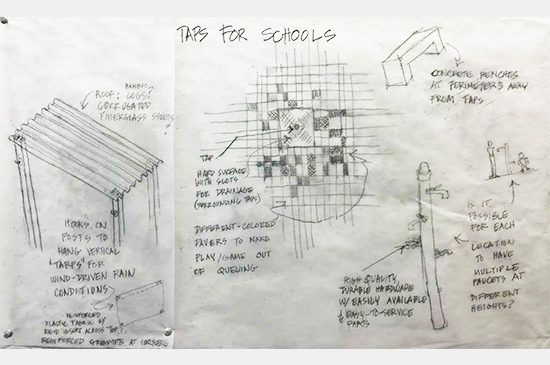 TAPS FOR SCHOOLS
BAMBOO
ROOF: LOGS?
CORRUGATED
FIBERGLASS SHEETS
HOOKS ON
POSTS TO
HANG VERTICAL
"TARPS" FOR
WIND-DRIVEN RAIN
CONDITIONS
REINFORCED
PLASTIC FABRIC W/
RIGID INSERT ACROSS TOP
REINFORCED GROMMETS AT CORNERS
TAP
HARD SURFACE
WITH SLOTS
FOR DRAINAGE
(SURROUNDING TAPS)
DIFFERENT-COLORED
PAVERS TO MAKE
PLAY/GAME OUT
OF QUEUING
CONCRETE BENCHES
AT PERIMETERS AWAY
FROM TAPS
HIGH QUALITY,
DURABLE HARDWARE
W/ EASILY AVAILABLE
& EASY-TO-SERVICE
PARTS
IS IT
POSSIBLE
FOR EACH
LOCATION
TO HAVE
MULTIPLE
FAUCETS AT
DIFFERENT
HEIGHTS?